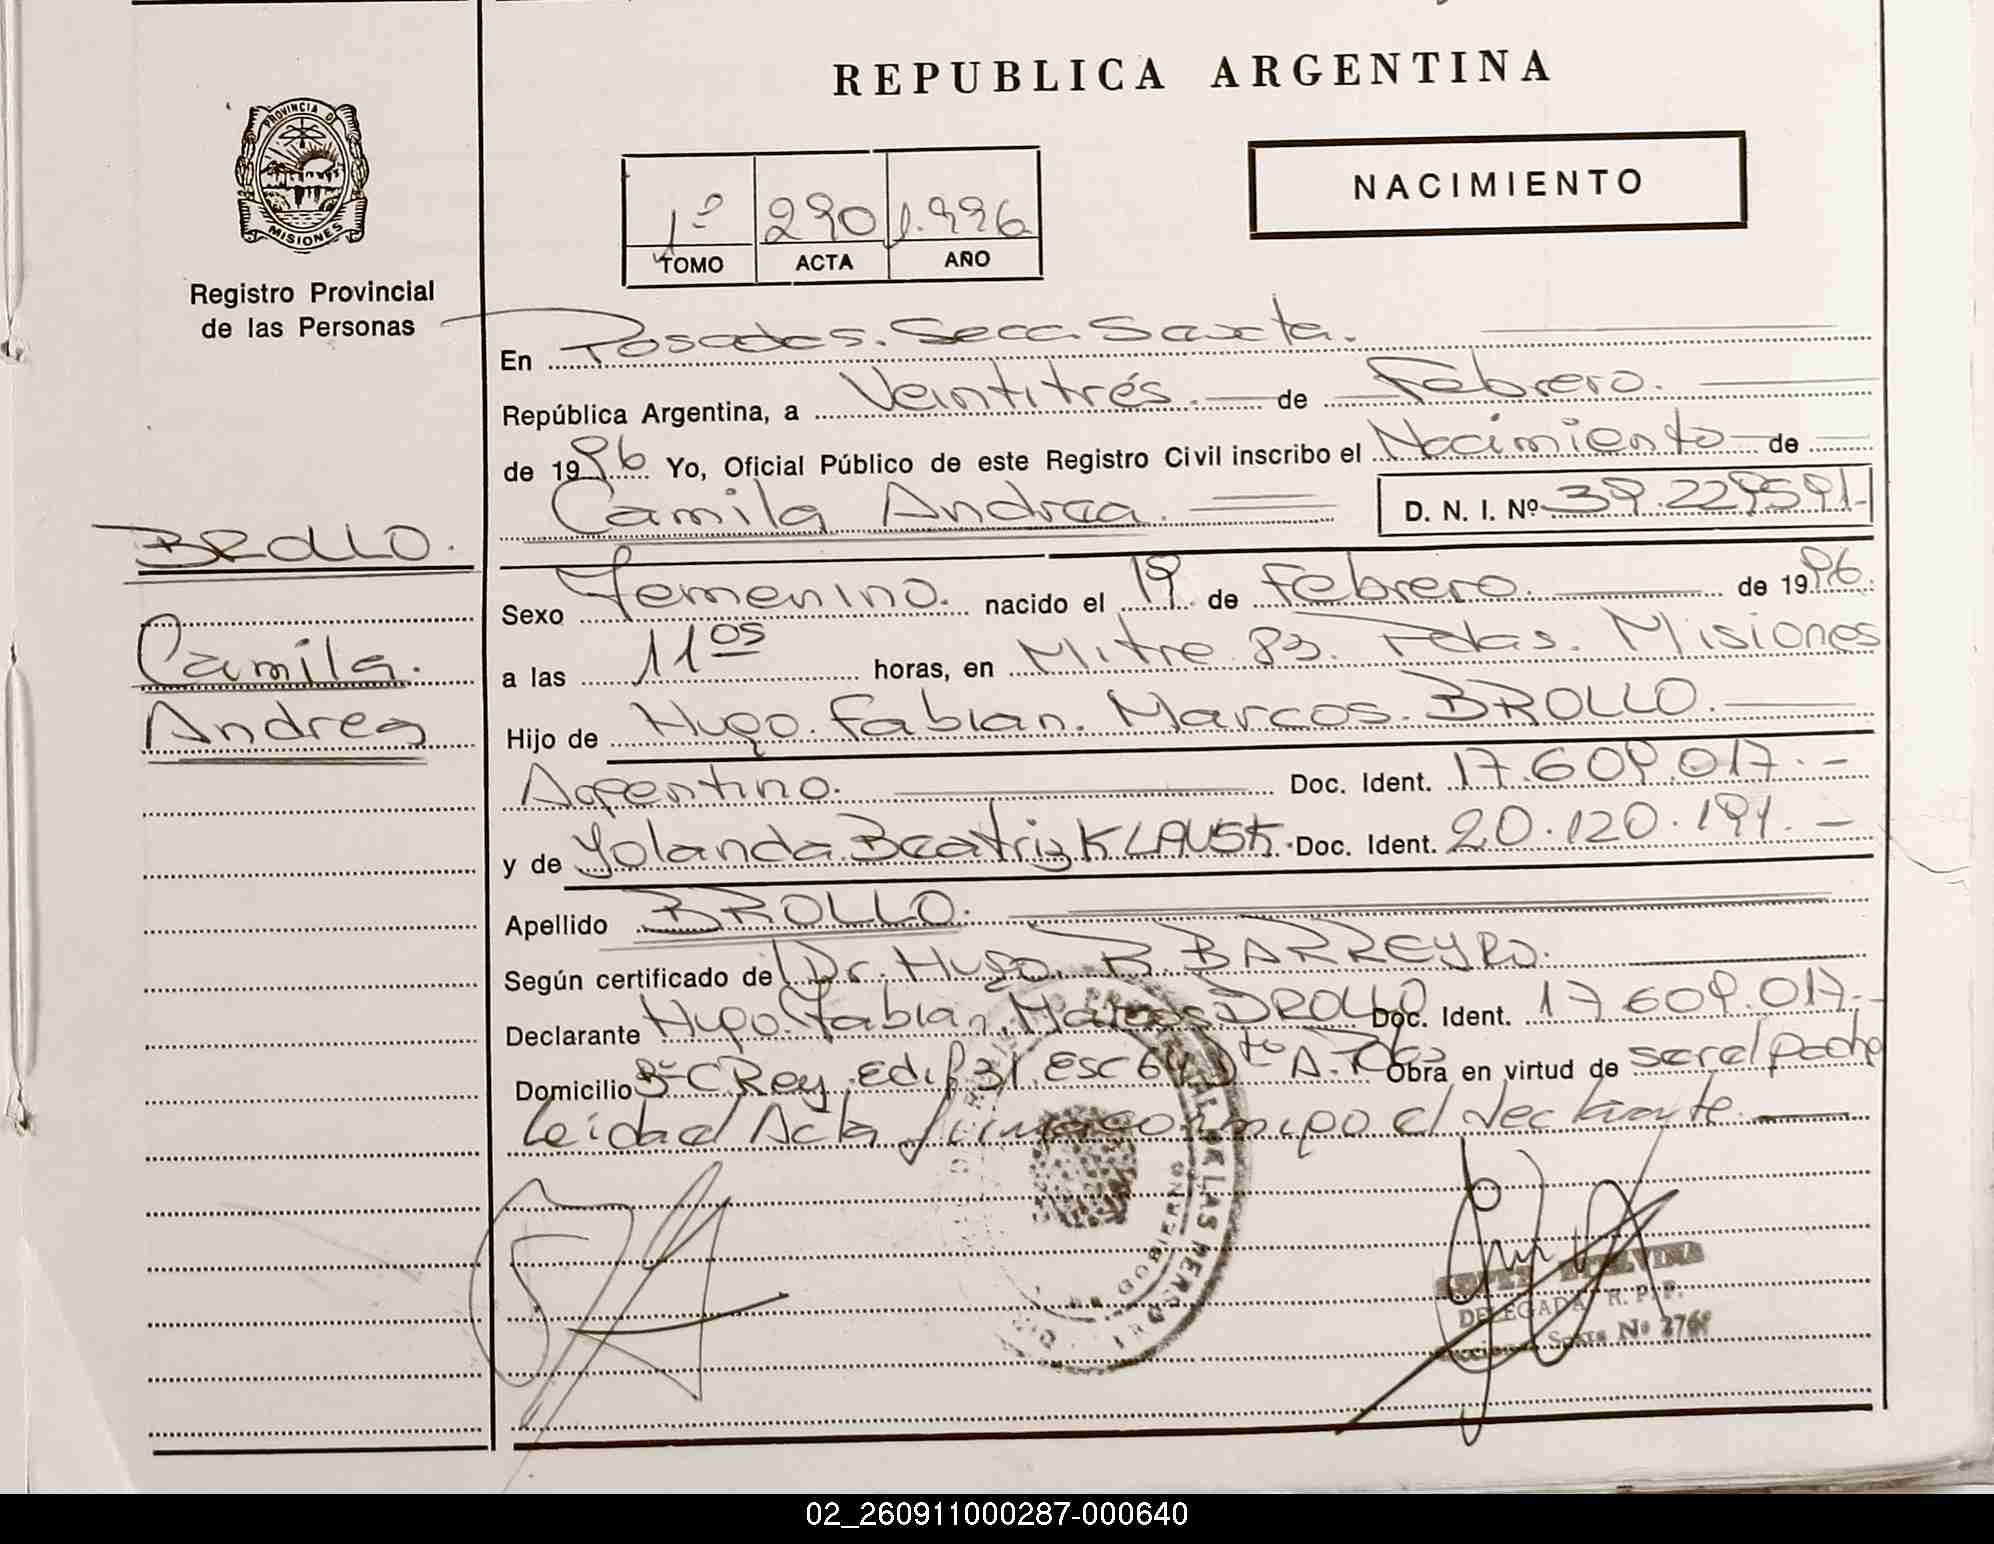 REPUBLICA ARGENTINA
PROVINCIA DE
MISIONES
Registro Provincial
de las Personas
1º 290 1.996
TOMO ACTA AÑO
NACIMIENTO
En Posadas. Secc. Sexta.
República Argentina, a Veintitrés. de Febrero.
de 1996 Yo, Oficial Público de este Registro Civil inscribo el Nacimiento de
Camila Andrea. D. N. I. Nº 39.229591-
BROLLO.
Camila.
Andrea
Sexo Femenino. nacido el 19 de Febrero. de 1996.
a las 11os horas, en Mitre 83. Pdas. Misiones
Hijo de Hugo. Fabian. Marcos. BROLLO.
Argentino. Doc. Ident. 17.609.017.-
y de Yolanda Beatriz KLAUSK. Doc. Ident. 20.120.191.-
Apellido BROLLO.
Según certificado de Dr. Hugo. R. BARREYRO.
Declarante Hugo. Fabian. Marcos BROLLO Doc. Ident. 17.609.017.-
Domicilio Bº C Rey. Edif 31. Esc 64 Dto A. Obra en virtud de ser el padre
Leida el Acta firma conmigo el declarante.
DE LAS PERSO
DELEGADA R. P. P.
Sexta Nº 276
02_260911000287-000640